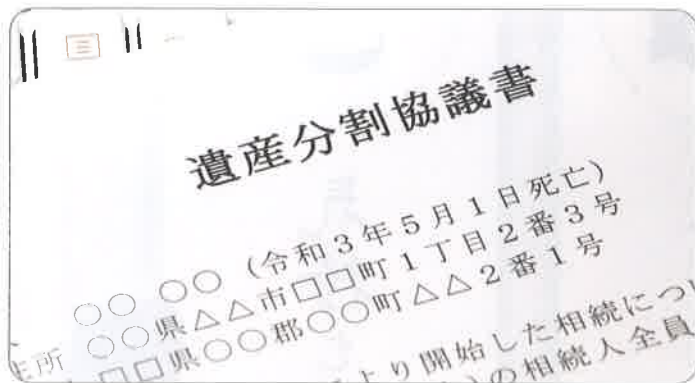 遺産分割協議書
○○ ○○（令和3年5月1日死亡）
住所 ○○県△△市□□町1丁目2番3号
□□県○○郡○○町△△2番1号
より開始した相続につい
の相続人全員